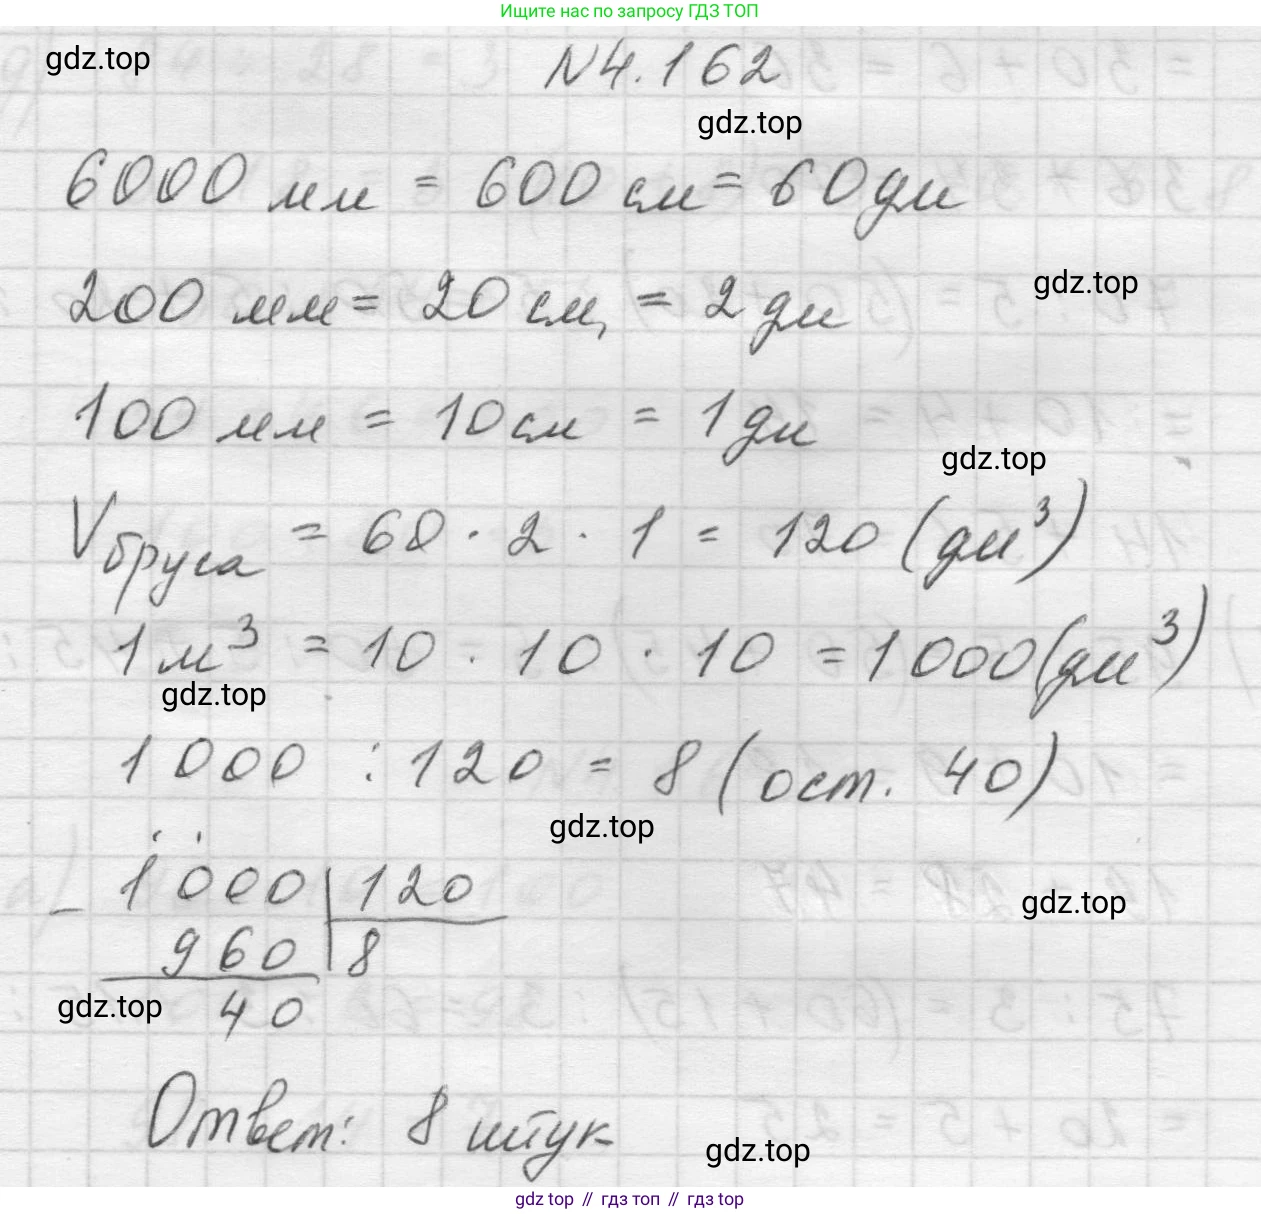 Ищите нас по запросу ГДЗ ТОП
gdz.top
N4.162
gdz.top
6000 мм = 600 см = 60 дм
200 мм = 20 см, = 2 дм
gdz.top
100 мм = 10 см = 1 дм
gdz.top
Vбруса = 60 · 2 · 1 = 120 (дм³)
1 м³ = 10 · 10 · 10 = 1000 (дм³)
gdz.top
1000 : 120 = 8 (ост. 40)
gdz.top
– 1000 | 120
gdz.top
960 | 8
gdz.top
40
Ответ: 8 штук
gdz.top
gdz top // гдз топ // gdz top